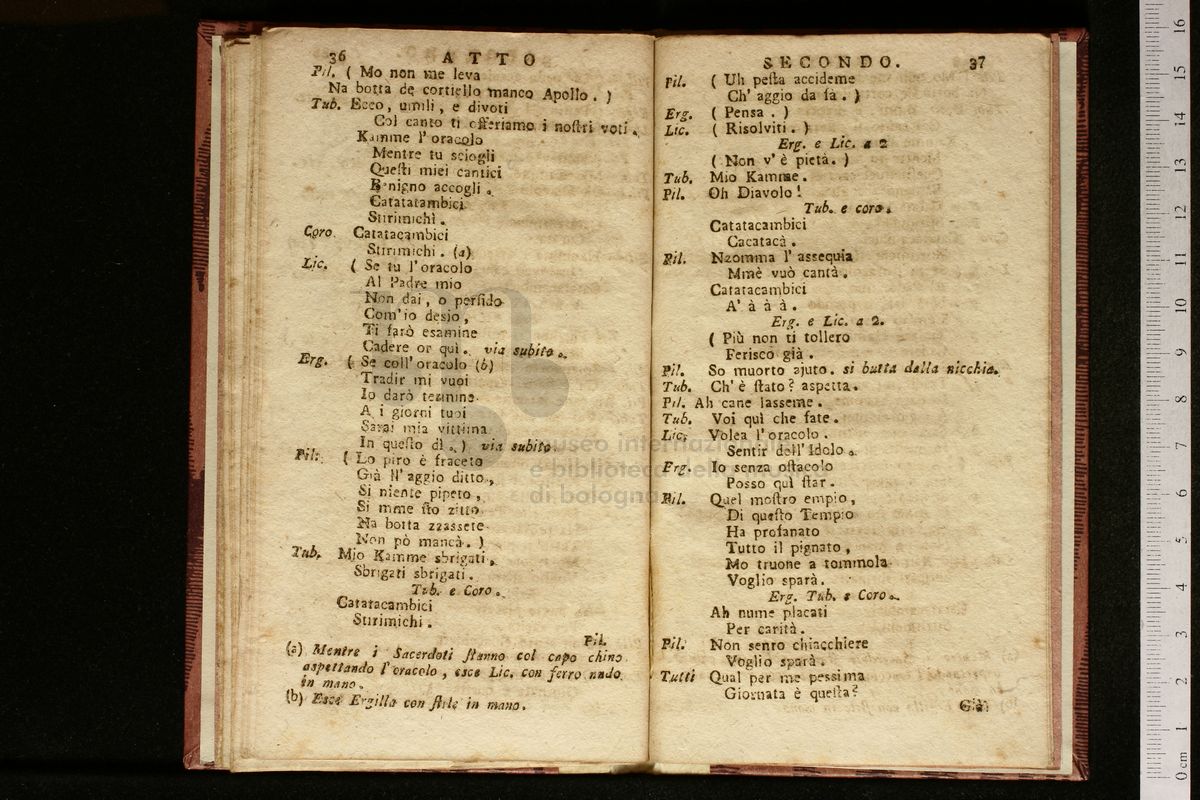 36 ATTO
Pil. ( Mo non me leva
Na botta de cortiello manco Apollo. )
Tub. Ecco, umili, e divoti
Col canto ti offeriamo i nostri voti.
Kamme l'oracolo
Mentre tu sciogli
Questi miei cantici
Benigno accogli.
Catatatambici
Stirimichì.
Coro. Catatacambici
Stirimichi. (a)
Lic. ( Se tu l'oracolo
Al Padre mio
Non dai, o perfido
Com'io desio,
Ti farò esamine
Cadere or quì. via subito.
Erg. ( Se coll'oracolo (b)
Tradir mi vuoi
Io darò termine
A i giorni tuoi
Sarai mia vittima
In questo dì. ) via subito.
Pil. ( Lo piro è fraceto
Già ll'aggio ditto,
Si niente pipeto,
Si mme sto zitto
Na botta zzassete
Non pò mancà. )
Tub. Mio Kamme sbrigati,
Sbrigati sbrigati.
Tub. e Coro.
Catatacambici
Stirimichi.
Pil.
(a) Mentre i Sacerdoti stanno col capo chino
aspettando l'oracolo, esce Lic. con ferro nudo
in mano.
(b) Esce Ergilla con stile in mano.
SECONDO. 37
Pil. ( Uh pesta accideme
Ch'aggio da fà. )
Erg. ( Pensa. )
Lic. ( Risolviti. )
Erg. e Lic. a 2
( Non v'è pietà. )
Tub. Mio Kamme.
Pil. Oh Diavolo!
Tub. e coro.
Catatacambici
Cacatacà.
Pil. Nzomma l'assequia
Mmè vuò cantà.
Catatacambici
A' à à à.
Erg. e Lic. a 2.
( Più non ti tollero
Ferisco già.
Pil. So muorto ajuto. si butta dalla nicchia.
Tub. Ch'è stato? aspetta.
Pil. Ah cane lasseme.
Tub. Voi quì che fate.
Lic. Volea l'oracolo.
Sentir dell'Idolo.
Erg. Io senza ostacolo
Posso quì star.
Pil. Quel mostro empio,
Di questo Tempio
Ha profanato
Tutto il pignato,
Mo truone a tommola
Voglio sparà.
Erg. Tub. e Coro.
Ah nume placati
Per carità.
Pil. Non sento chiacchiere
Voglio sparà.
Tutti Qual per me pessima
Giornata è questa?
Già
museo internazionale
e biblioteca della musica
di bologna
0 cm 1 2 3 4 5 6 7 8 9 10 11 12 13 14 15 16